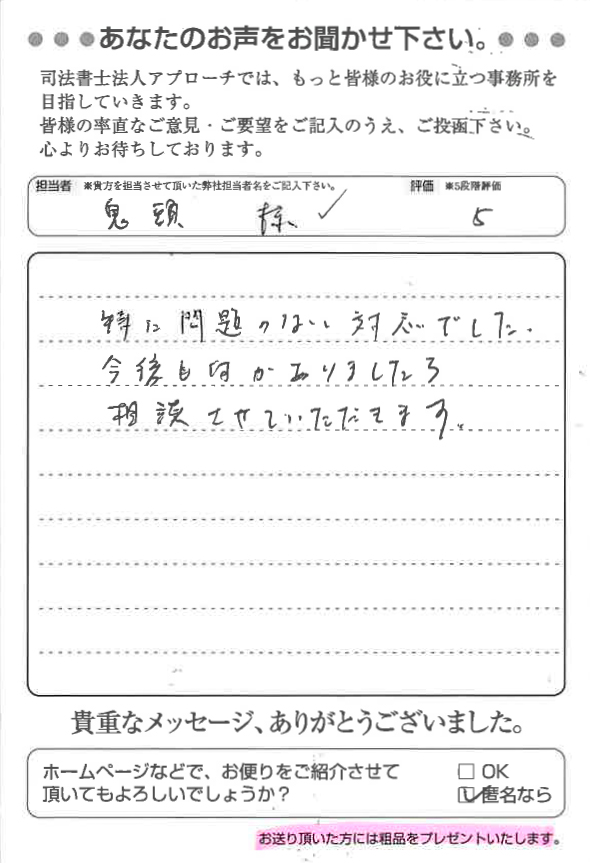 ●●●あなたのお声をお聞かせ下さい。●●●
司法書士法人アプローチでは、もっと皆様のお役に立つ事務所を
目指していきます。
皆様の率直なご意見・ご要望をご記入のうえ、ご投函下さい。
心よりお待ちしております。
担当者 ※貴方を担当させて頂いた弊社担当者名をご記入下さい。 評価 ※5段階評価
鬼頭 様 5
特に問題のない対応でした.
今後も何かありましたら
相談させていただきます。
貴重なメッセージ、ありがとうございました。
ホームページなどで、お便りをご紹介させて □ OK
頂いてもよろしいでしょうか? ☑ 匿名なら
お送り頂いた方には粗品をプレゼントいたします。